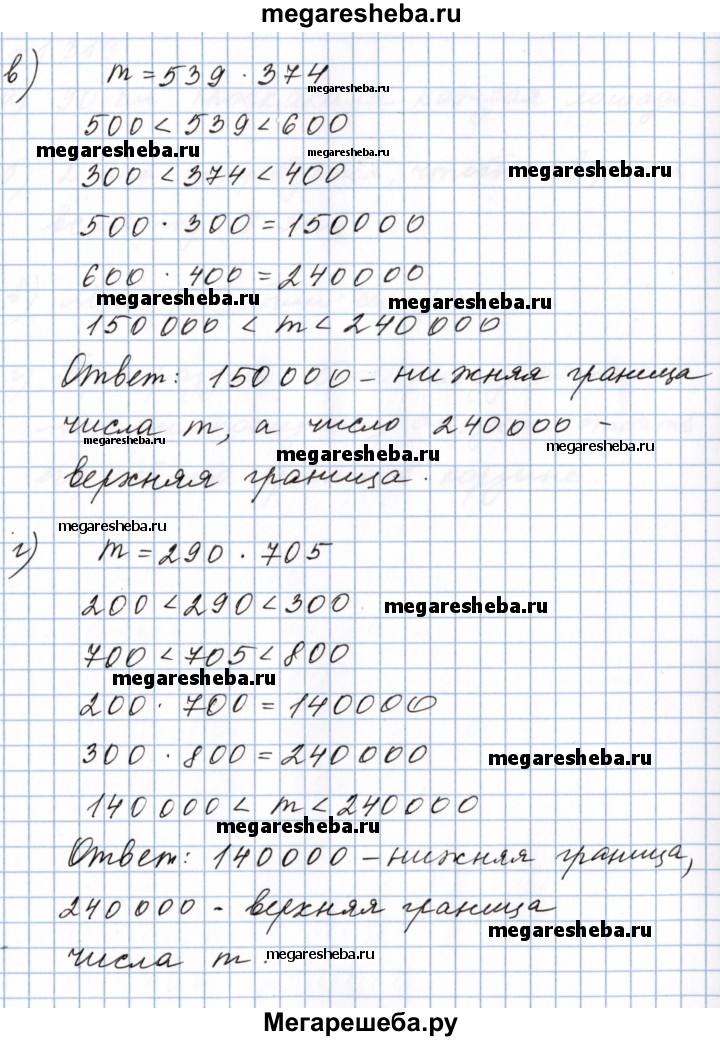 megaresheba.ru
в) m = 539 · 374
megaresheba.ru
500 < 539 < 600
megaresheba.ru megaresheba.ru
300 < 374 < 400 megaresheba.ru
500 · 300 = 150000
600 · 400 = 240000
megaresheba.ru megaresheba.ru
150000 < m < 240000
Ответ: 150000 – нижняя граница
числа m, а число 240000 –
megaresheba.ru megaresheba.ru megaresheba.ru
верхняя граница.
megaresheba.ru
г) m = 290 · 705
200 < 290 < 300 megaresheba.ru
700 < 705 < 800
megaresheba.ru
200 · 700 = 140000
300 · 800 = 240000 megaresheba.ru
140000 < m < 240000
megaresheba.ru
Ответ: 140000 – нижняя граница,
240000 - верхняя граница
megaresheba.ru
числа m. megaresheba.ru
Мегарешеба.ру